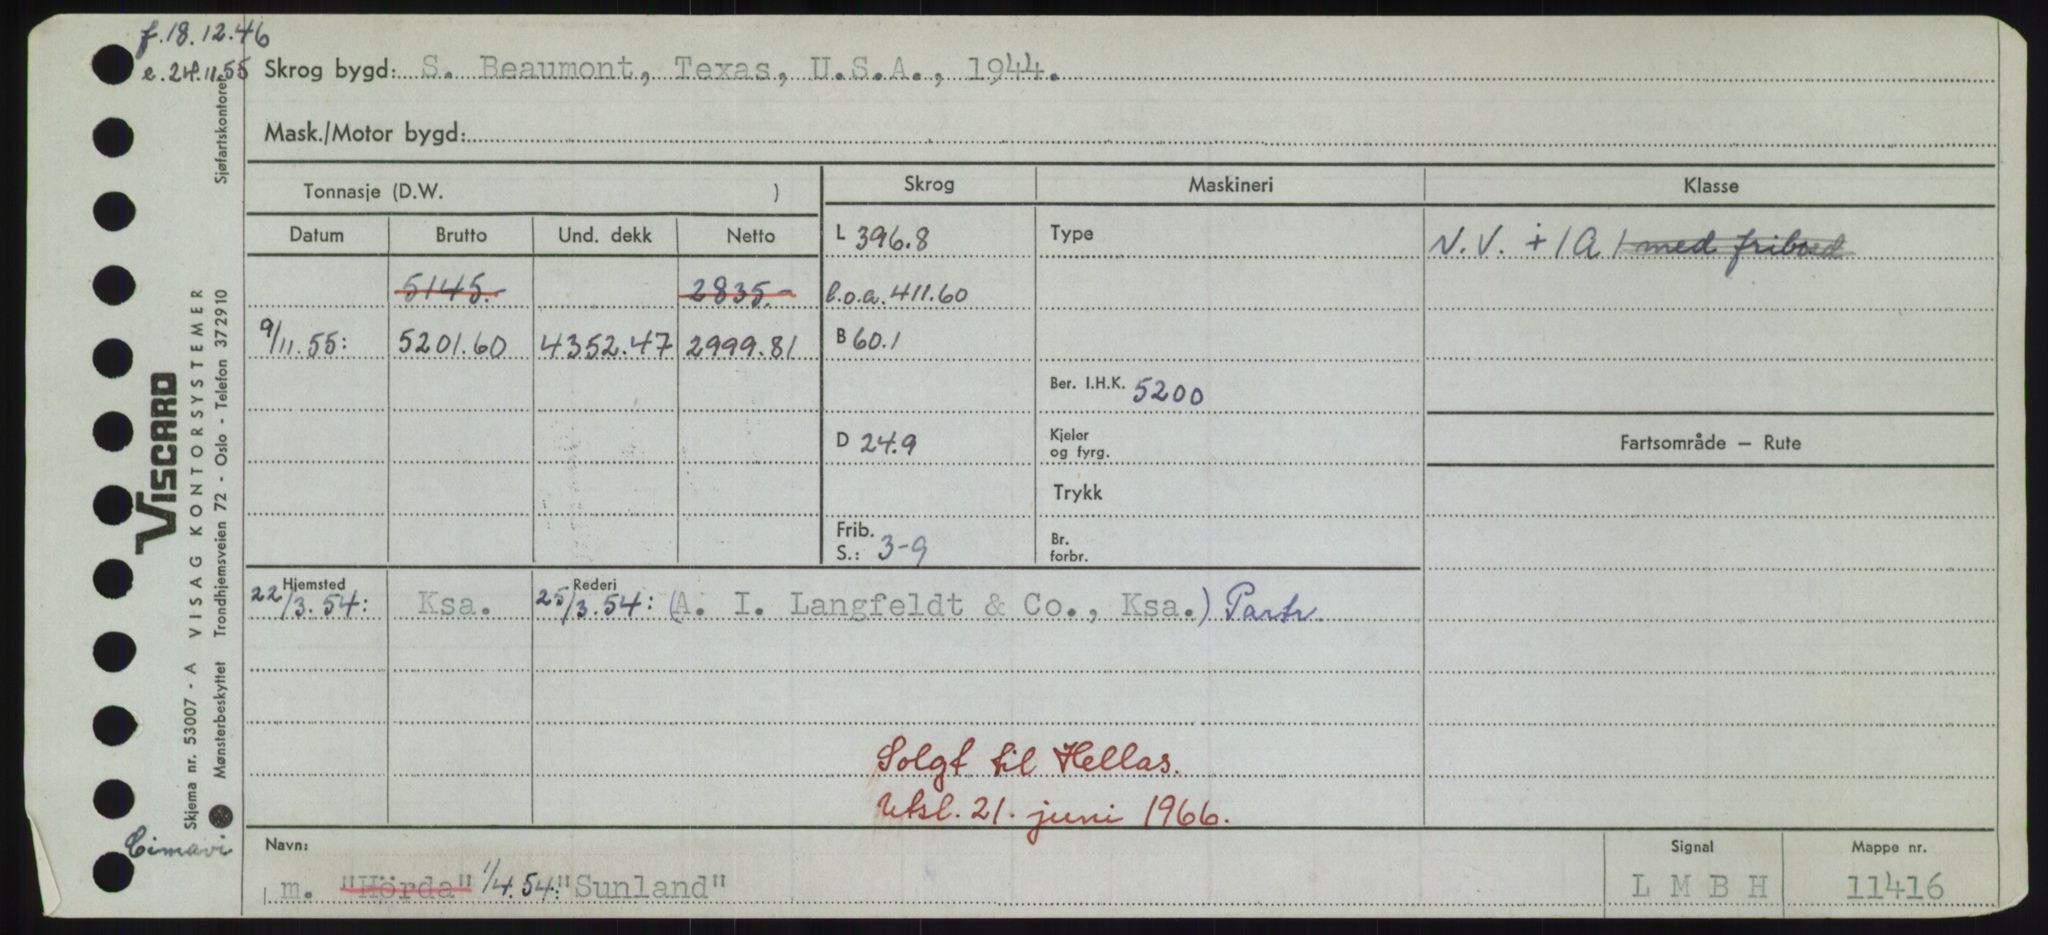 f. 18.12.46
e. 24.11.55
Skrog bygd: S. Beaumont, Texas, U.S.A., 1944.
Mask./Motor bygd:
Tonnasje (D.W. )
Skrog
Maskineri
Klasse
Datum
Brutto
Und. dekk
Netto
L 396.8
Type
N.V. + 1A1 med fribord
5145.-
2835.-
l.o.a. 411.60
9/11.55:
5201.60
4352.47
2999.81
B 60.1
Ber. I.H.K. 5200
D 24.9
Kjeler
og fyrg.
Fartsområde — Rute
Trykk
Frib.
S.: 3-9
Br.
forbr.
Hjemsted
22/3.54:
Ksa.
Rederi
25/3.54: (A. I. Langfeldt & Co., Ksa.) Partr.
Solgt til Hellas.
Utsl. 21. juni 1966.
Navn:
m. "Hörda" 1/4.54: "Sunland"
Signal
L M B H
Mappe nr.
11416
VISCARD
VISAG KONTORSYSTEMER
Sjøfartskontoret
Skjema nr. 53007 - A
Mønsterbeskyttet
Trondhjemsveien 72 - Oslo - Telefon 372910